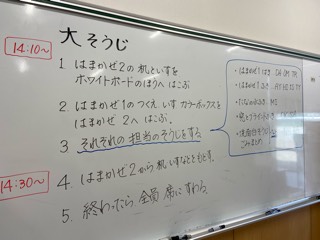 大そうじ
14:10〜
1 はまかぜ2の机といすを
ホワイトボードのほうへはこぶ
2 はまかぜ1のつくえ いす カラーボックスを
はまかぜ2へはこぶ。
3 それぞれの担当のそうじをする
14:30〜
4. はまかぜ2から机いすなどをもどす。
5. 終わったら、全員 席にすわる。
・はまかぜ1
・はまかぜ2